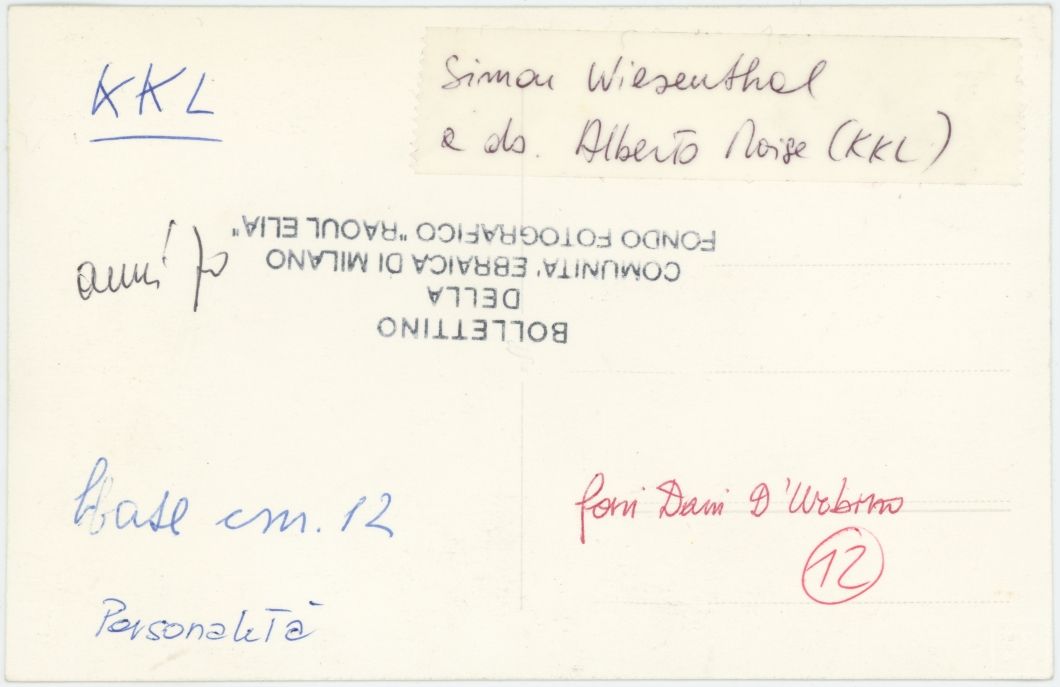 KKL
Simon Wiesenthal
a ds. Alberto Moise (KKL)
anni 70
BOLLETTINO
DELLA
COMUNITA' EBRAICA DI MILANO
FONDO FOTOGRAFICO "RAOUL ELIA"
base cm. 12
Dani D'Urbino
12
Personalità